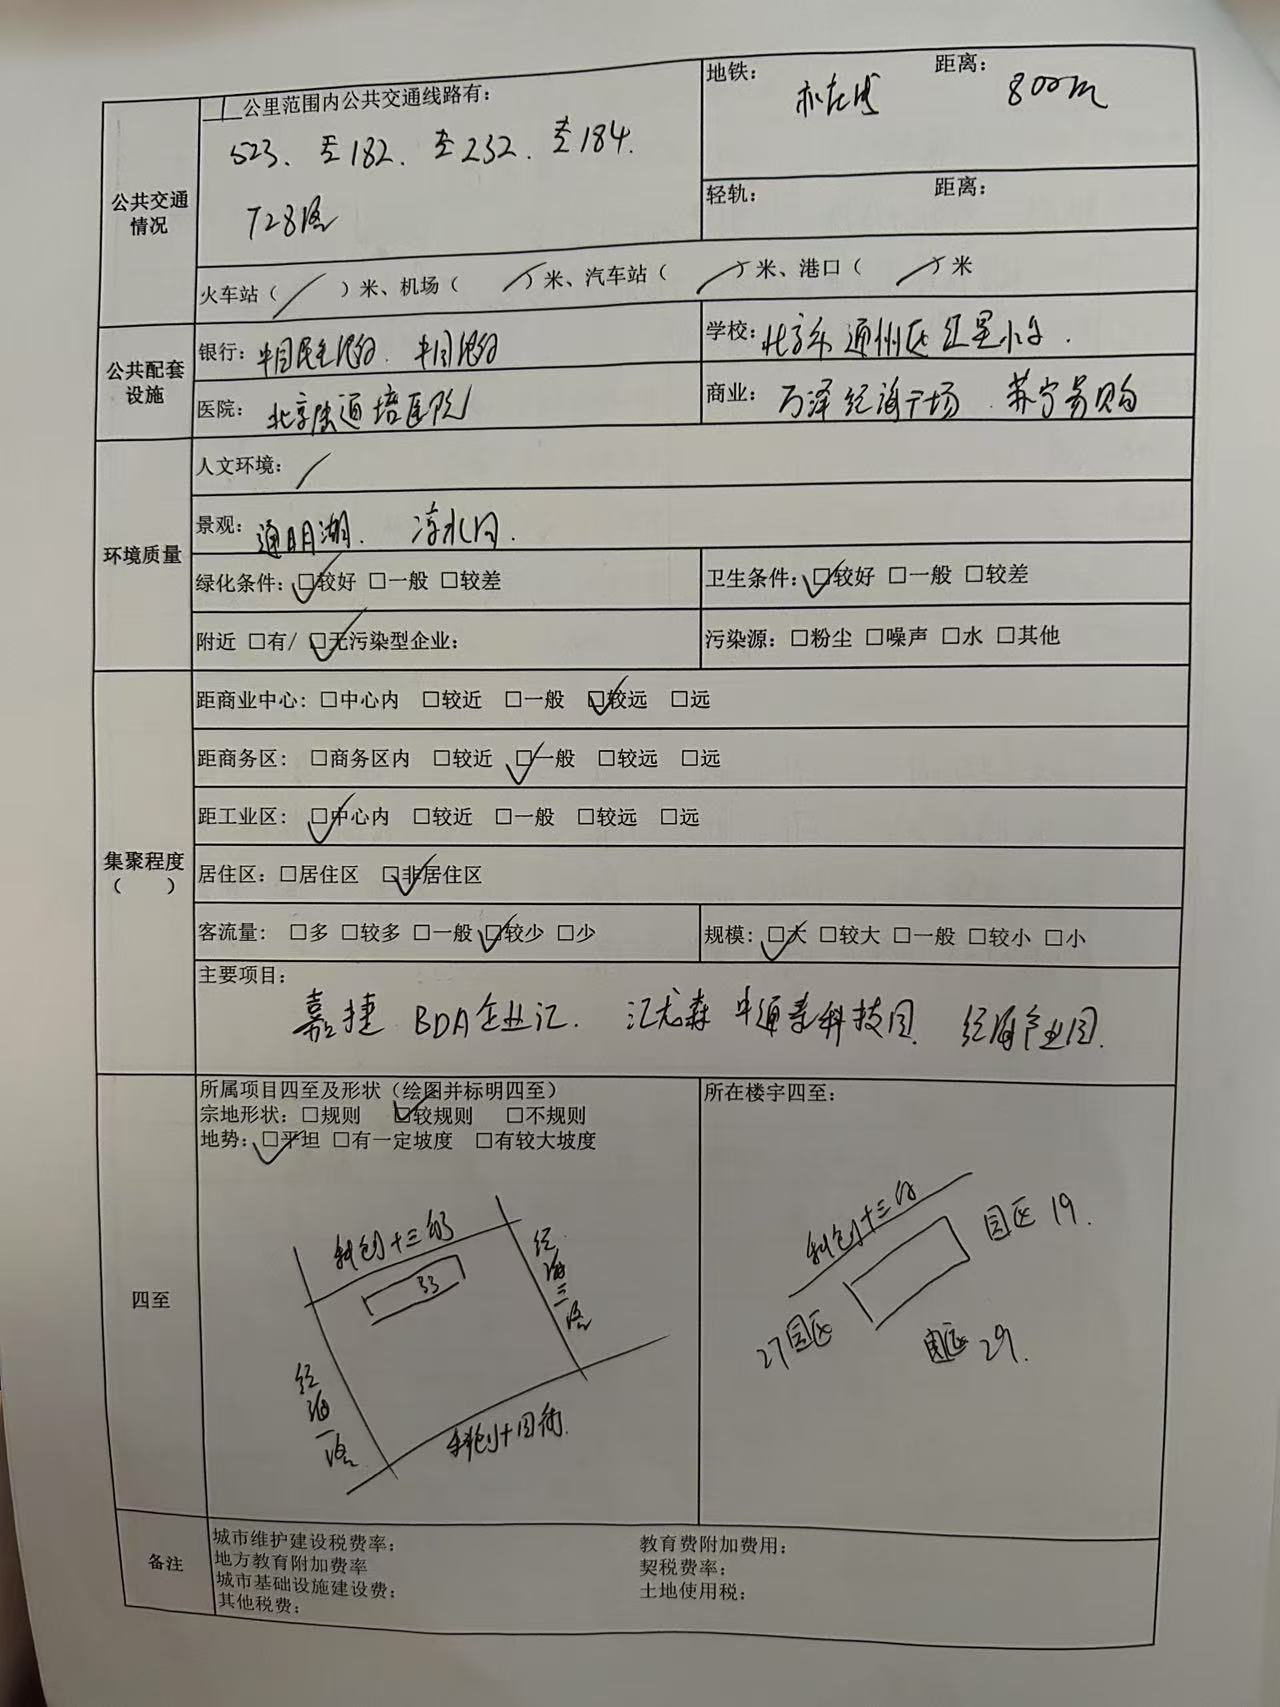 1 公里范围内公共交通线路有：
523、专182、专232、专184、
728路
地铁： 距离： 800m
轻轨： 距离：
火车站（ / ）米、机场（ / ）米、汽车站（ / ）米、港口（ / ）米
公共交通
情况
银行：中国民生银行、中国银行
学校：北京市通州区红星小学.
医院：北京陆通培医院
商业：万泽经海广场、苏宁易购
公共配套
设施
人文环境： /
景观：通明湖、凉水河.
绿化条件：☑较好 □一般 □较差
卫生条件：☑较好 □一般 □较差
附近 □有/ ☑无污染型企业：
污染源：□粉尘 □噪声 □水 □其他
环境质量
距商业中心：□中心内 □较近 □一般 ☑较远 □远
距商务区： □商务区内 □较近 ☑一般 □较远 □远
距工业区： ☑中心内 □较近 □一般 □较远 □远
居住区：□居住区 ☑非居住区
客流量： □多 □较多 □一般 ☑较少 □少
规模：☑大 □较大 □一般 □较小 □小
集聚程度
（ ）
主要项目：
嘉捷 BDA企业汇、汇龙森 中通泰科技园、经海产业园.
所属项目四至及形状（绘图并标明四至）
宗地形状：□规则 ☑较规则 □不规则
地势：☑平坦 □有一定坡度 □有较大坡度
科创十三街
33
经海三路
经海一路
科创十四街.
所在楼宇四至：
科创十三街
园区 19.
27园区
园区 29.
四至
备注
城市维护建设税费率： 教育费附加费用：
地方教育附加费率 契税费率：
城市基础设施建设费： 土地使用税：
其他税费：